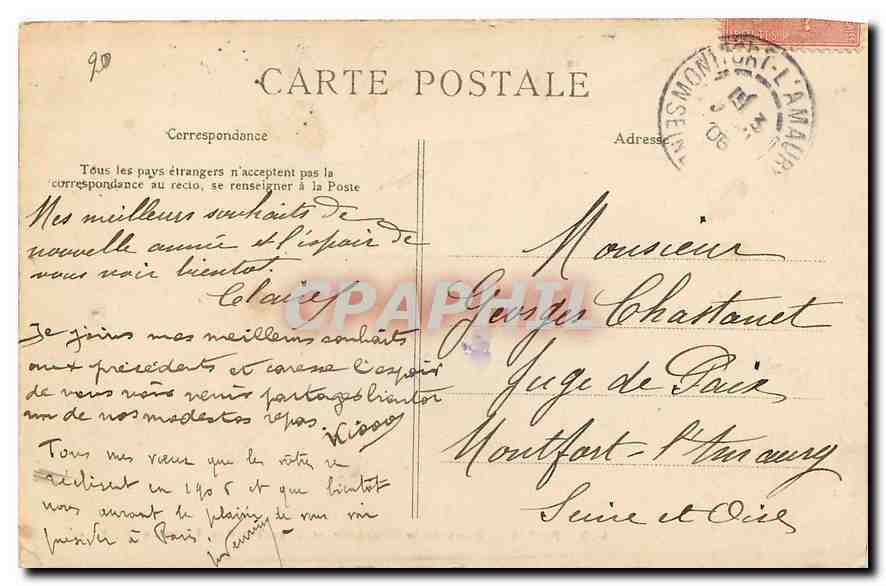 20
CARTE POSTALE
MONTFORT-L'AMAURY
SEINE
3
06
Correspondance
Adresse
Tous les pays étrangers n'acceptent pas la
correspondance au recto, se renseigner à la Poste
Mes meilleurs souhaits de
nouvelle année et l'espoir de
vous voir bientot.
Claire
Je joins mes meilleurs souhaits
aux précédents et caresse l'espoir
de vous voir venir partager bientot
un de nos modestes repas.
Tous mes vœux que les vôtres se
réalisent en 1906 et que bientôt
nous aurons le plaisir de vous voir
présider à Paris.
Monsieur
Georges Chastanet
Juge de Paix
Montfort-l'Amaury
Seine et Oise
CPAPHIL